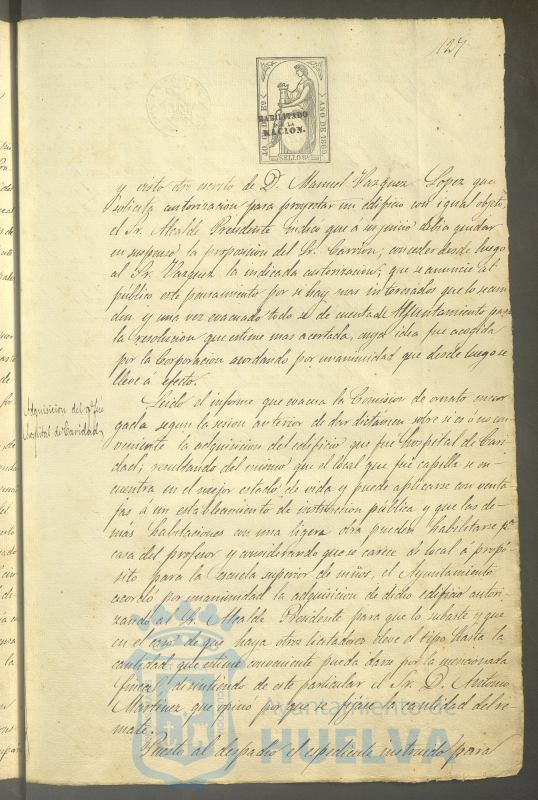 127
HABILITADO
POR LA
NACION.
AÑO DE 1869
SELLO 9º
y visto otro escrito de D. Manuel Vazquez Lopez que
solicita autorizacion para proyectar un edificio con igual objeto,
el Sr. Alcalde Presidente indico que á su juicio debia quedar
en suspenso la proposicion del Sr. Carrion, conceder desde luego
al Sr. Vazquez la indicada autorizacion, que se anuncie al
publico este pensamiento por si hay mas interesados que lo secun-
den y una vez evacuado todo se dé cuenta al Ayuntamiento para
la resolucion que estime mas acertada, cuya idea fue acogida
por la Corporacion acordando por unanimidad que desde luego se
lleve a efecto.
Adquisicion del
hospital de Caridad
Leido el informe que evacua la Comision de ornato encar-
gada segun la sesion anterior de dar dictamen sobre si es ó no con-
veniente la adquisicion del edificio que fue hospital de Cari-
dad; resultando del mismo que el local que fue capilla se en-
cuentra en el mejor estado de vida y puede aplicarse con venta-
jas á un establecimiento de instruccion publica y que las de-
más habitaciones con una ligera obra pueden habilitarse pª
casa del profesor y considerando que se carece de local á propó-
sito para la escuela superior de niños, el Ayuntamiento
acordó por unanimidad la adquisicion de dicho edificio autori-
zando al Sr. Alcalde Presidente para que lo subaste y que
en el caso de que haya otros licitadores eleve el tipo hasta la
cantidad que estime conveniente pueda darse por la mencionada
finca; disintiendo de este particular el Sr. D. Antonio
Martinez que opinó por que se fijara la cantidad del re-
mate.
Puesto al despacho el espediente instruido para
Ayuntamiento de
HUELVA